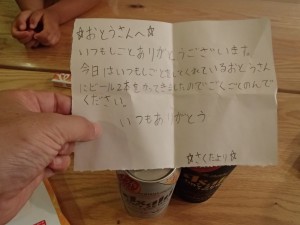 ☆おとうさんへ☆
いつもしごとありがとうございます。
今日はいつもしごとをしてくれているおとうさん
にビール2本をかってきましたのでごくごくのんで
ください。
いつもありがとう
☆さくたより☆